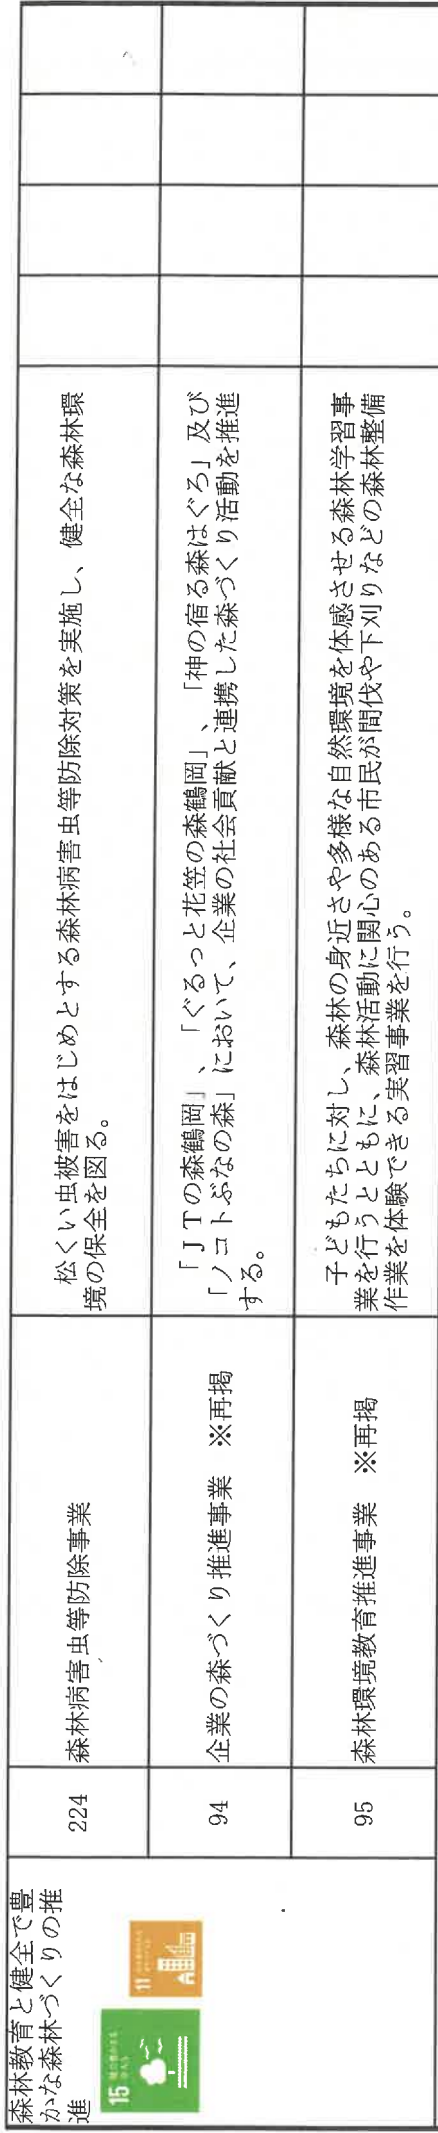 森林教育と健全で豊
かな森林づくりの推
進
15
11
224
森林病害虫等防除事業
松くい虫被害をはじめとする森林病害虫等防除対策を実施し、健全な森林環
境の保全を図る。
94
企業の森づくり推進事業　※再掲
「ＪＴの森鶴岡」、「ぐるっと花笠の森鶴岡」、「神の宿る森はぐろ」及び
「ノコトぶなの森」において、企業の社会貢献と連携した森づくり活動を推進
する。
95
森林環境教育推進事業　※再掲
子どもたちに対し、森林の身近さや多様な自然環境を体感させる森林学習事
業を行うとともに、森林活動に関心のある市民が間伐や下刈りなどの森林整備
作業を体験できる実習事業を行う。